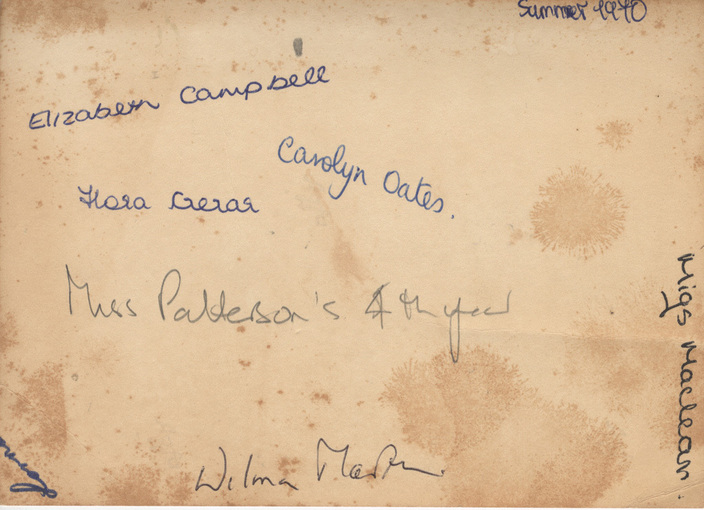 Summer 1970
Elizabeth Campbell
Carolyn Oates.
Flora Crerar
Miss Patterson's 4th year
Migs Maclean.
Wilma Martin.